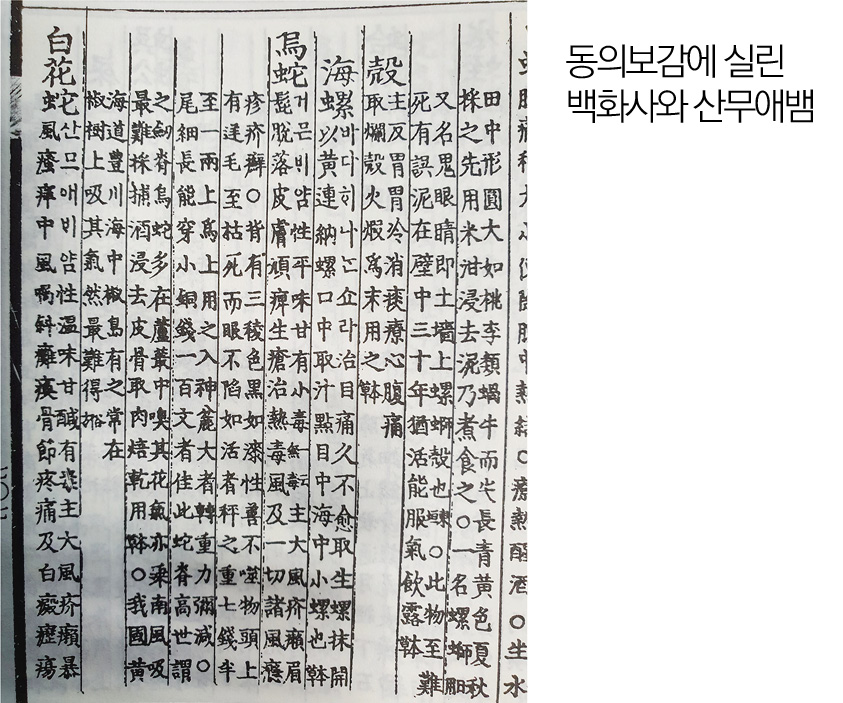 田中形圓大如桃李類蝸牛而尖長青黃色夏秋
採之先用米泔浸去泥乃煮食之○一名螺螄
又名鬼眼睛即土墻上螺螄殼也○此物至難
死有誤泥在壁中三十年猶活能服氣飲露
殼主反胃胃冷消痰療心腹痛
取爛殼火煆爲末用之
海螺바다히나ᄂᆞᆫ쇼라治目痛久不愈取生螺抹開
以黃連納螺口中取汁點目中海中小螺也
烏蛇거믄ᄇᆡ얌性平味甘有小毒一云無毒主大風疥癩眉
髭脫落皮膚頑痺生瘡治熱毒風及一切諸風癮
疹疥癬○背有三稜色黑如漆性善不噬物頭上
有逆毛至枯死而眼不陷如活者秤之重七錢半
至一兩上爲上用之入神麁大者轉重力彌減○
尾細長能穿小銅錢一百文者佳此蛇脊高世謂
之劒脊烏蛇多在蘆叢中嗅其花氣亦乘南風吸
最難採捕酒浸去皮骨取肉焙乾用○我國黃
海道豊川海中椒島有之常在
椒樹上吸其氣然最難得
白花蛇산므애ᄇᆡ얌性溫味甘醎有毒主大風疥癩暴
風瘙痒中風喎斜癱瘓骨節疼痛及白癜癧瘍
동의보감에 실린
백화사와 산무애뱀